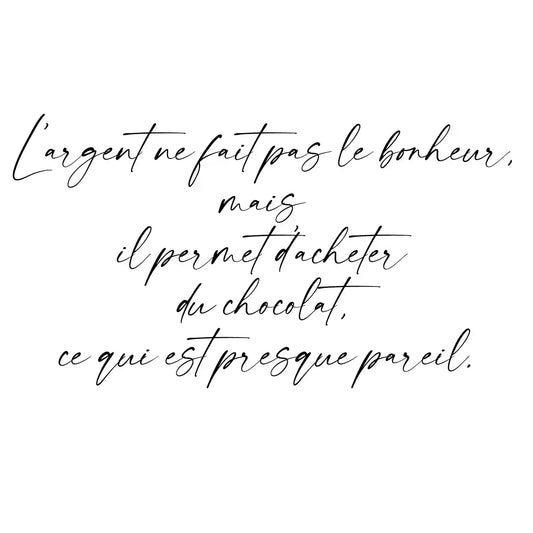 L'argent ne fait pas le bonheur,
mais
il permet d'acheter
du chocolat,
ce qui est presque pareil.